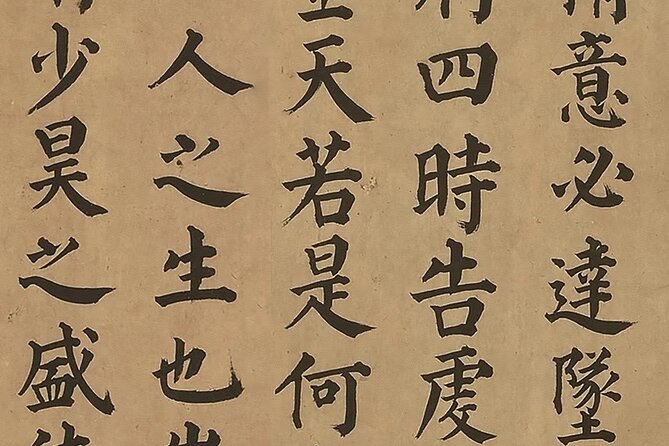 意必達墜
四時告虔
天若是何
人之生也
少昊之盛